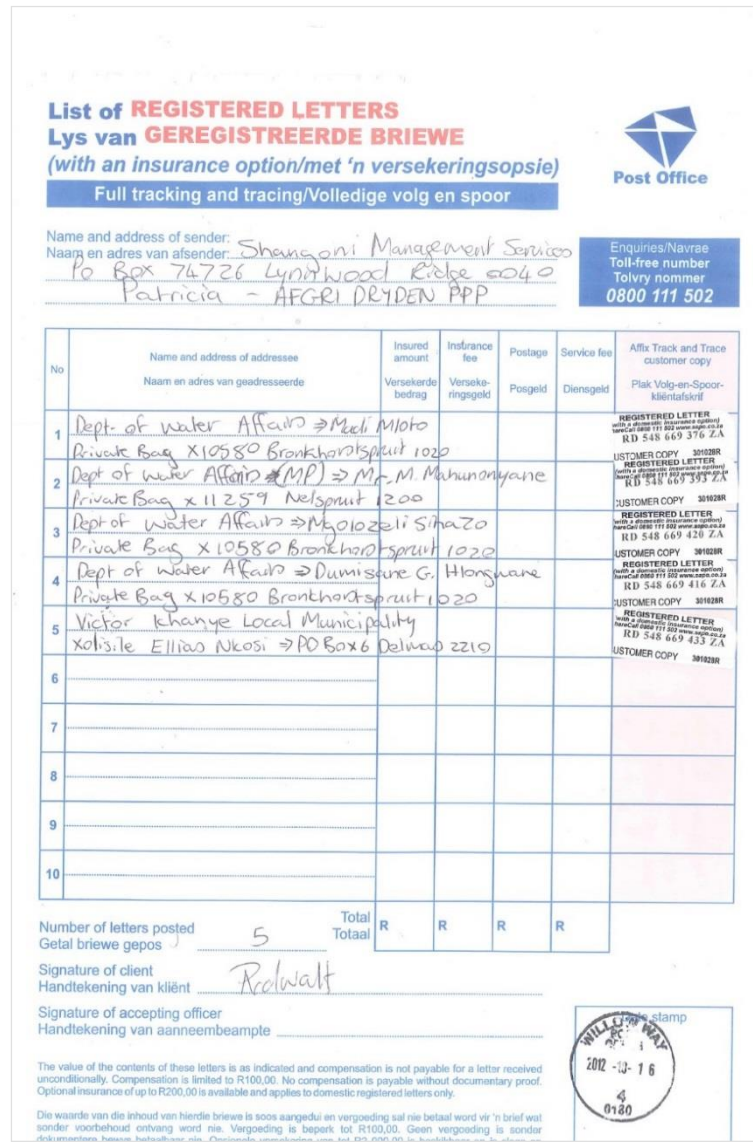 List of REGISTERED LETTERS
Lys van GEREGISTREERDE BRIEWE
(with an insurance option/met 'n versekeringsopsie)
Full tracking and tracing/Volledige volg en spoor
Post Office
Name and address of sender:
Naam en adres van afsender: Shangoni Management Services
PO Box 74726 Lynnwood Ridge 0040
Patricia - AFGRI DRYDEN PPP
Enquiries/Navrae
Toll-free number
Tolvry nommer
0800 111 502
No
Name and address of addressee
Naam en adres van geadresseerde
Insured amount
Versekerde bedrag
Insurance fee
Verseke-ringsgeld
Postage
Posgeld
Service fee
Diensgeld
Affix Track and Trace customer copy
Plak Volg-en-Spoor-kliëntafskrif
1
Dept. of Water Affairs ⇒ Mudi Mloto
Private Bag X10580 Bronkhorstspruit 1020
REGISTERED LETTER
(with a domestic insurance option)
hareCall 0800 111 502 www.sapo.co.za
RD 548 669 376 ZA
USTOMER COPY 301028R
2
Dept of Water Affairs (MP) ⇒ Mr. M. Mahunonyane
Private Bag X11259 Nelspruit 1200
REGISTERED LETTER
(with a domestic insurance option)
hareCall 0800 111 502 www.sapo.co.za
RD 548 669 393 ZA
CUSTOMER COPY 301028R
3
Dept of Water Affairs ⇒ Mgolozeli Sihazo
Private Bag X10580 Bronkhorstspruit 1020
REGISTERED LETTER
(with a domestic insurance option)
hareCall 0800 111 502 www.sapo.co.za
RD 548 669 420 ZA
CUSTOMER COPY 301028R
4
Dept of Water Affairs ⇒ Dumisane G. Hlongwane
Private Bag X10580 Bronkhorstspruit 1020
REGISTERED LETTER
(with a domestic insurance option)
hareCall 0800 111 502 www.sapo.co.za
RD 548 669 416 ZA
CUSTOMER COPY 301028R
5
Victor Khanye Local Municipality
Xolisile Ellias Nkosi ⇒ PO Box 6 Delmas 2210
REGISTERED LETTER
(with a domestic insurance option)
hareCall 0800 111 502 www.sapo.co.za
RD 548 669 433 ZA
USTOMER COPY 301028R
6
7
8
9
10
Number of letters posted
Getal briewe gepos 5
Total
Totaal
R R R R
Signature of client
Handtekening van kliënt
Signature of accepting officer
Handtekening van aanneembeampte
stamp
WILLOW WAY
2012 -10- 16
4
0180
The value of the contents of these letters is as indicated and compensation is not payable for a letter received
unconditionally. Compensation is limited to R100,00. No compensation is payable without documentary proof.
Optional insurance of up to R200,00 is available and applies to domestic registered letters only.
Die waarde van die inhoud van hierdie briewe is soos aangedui en vergoeding sal nie betaal word vir 'n brief wat
sonder voorbehoud ontvang word nie. Vergoeding is beperk tot R100,00. Geen vergoeding is sonder